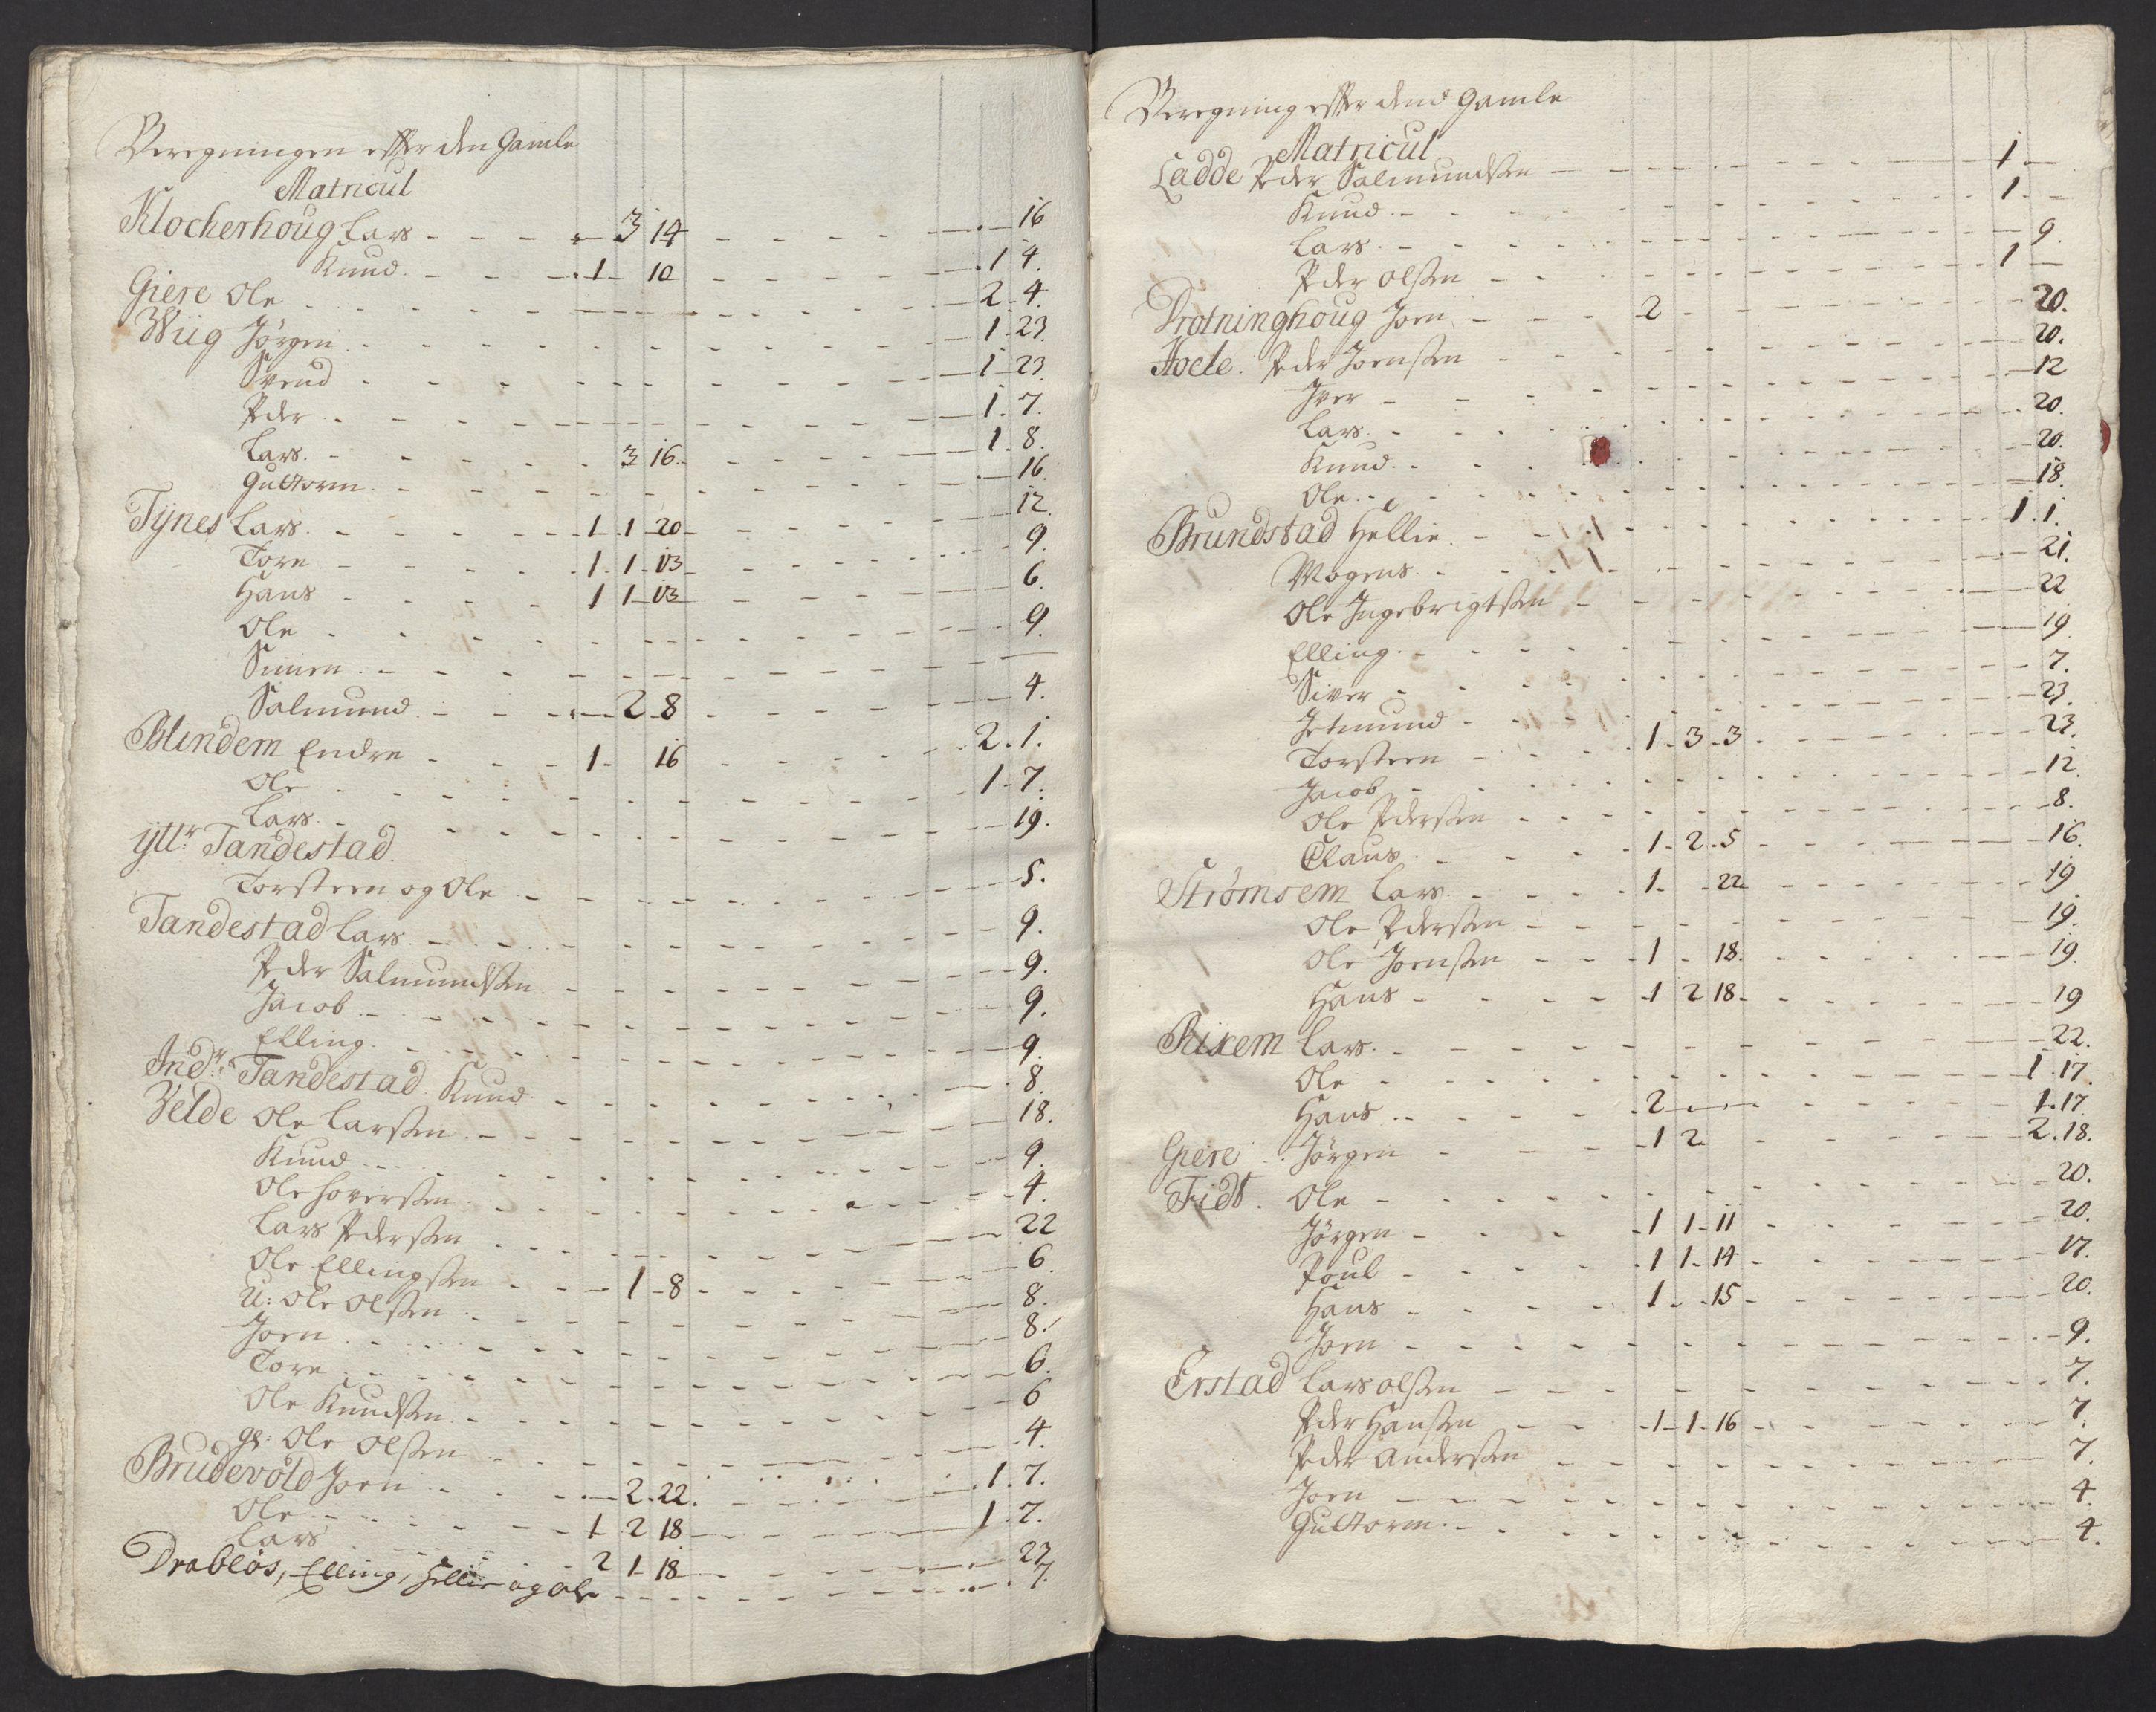 Beregningen effter den Gamle
Matricul
Klocherhoug Lars - - - - 3 14 - - - - - 16
Knud - - - 1 - 10 - - - - 1 4.
Giere Ole - - - - - 2 - 4.
Wiig Jørgen - - - - - 1 - 23.
Svend - - - - - 1 - 23
Peder - - - - - 1. 7.
Lars - - - - - 3 16. - - - - 1 8.
Guttorm - - - - - 16
Tÿnes Lars - - - - 1 - 1 - 20 - - - - 12.
Tore - - - - 1. 1 - 13 - - - - 9.
Hans - - - - 1 1 - 13 - - - - 6.
Ole - - - - - 9.
Simen - - - - -
Salmund - - - - 2 - 8 - - - - 4.
Blindem Endre - - - 1 - 16 - - - - 2. 1.
Ole - - - - - 1 - 7.
Lars - - - - - 19.
ÿttr Tandestad.
Torsteen og Ole - - - - - 5.
Tandestad Lars - - - - - 9.
Peder Salmundsen - - - - - 9.
Jacob - - - - - 9.
Elling - - - - - 9.
Indr: Tandestad. Knud - - - - - 8.
Velde Ole Larsen - - - - - 18.
Knud - - - - - 9.
Ole Sversen - - - - - 4.
Lars Pedersen - - - - - 22
Ole Ellingsen - - - 1 - 8 - - - - 6.
U: Ole Olsen - - - - - 8.
Joen - - - - - 8.
Tore - - - - - 6.
Ole Knudsen - - - - - 6
gl: Ole Olsen - - - - - 4.
Brudevold Joen - - - 2. 22. - - - - 1. 7.
Ole - - - - 1 2 18 - - - - 1. 7.
Lars - - - - 2 1 - 18 - - - - 23
Drabløs, Elling, Hellie og Ole - - - - - 7.
Beregning effter dend Gamle
Matricul
Ladde Peder Salmundsen - - - - - 1 -
Knud - - - - - 1 -
Lars - - - - - 9.
Peder Olsen - - - - - 1 -
Drotninghoug Joen - - - 2 - - - - 20.
Hoele. Peder Joensen - - - - - 20.
Iver - - - - - 12
Lars - - - - - 20.
Knud - - - - - 20.
Ole - - - - - 18.
Brundstad Hellie - - - - - 1. 1.
Mogens - - - - - 21.
Ole Ingebrigtsen - - - - - 22
Elling - - - - - 19
Siver - - - - - 7.
Jetmund - - - - - 23.
Torsteen - - - 1 - 3 - 3 - - - - 23.
Jacob - - - - - 12.
Ole Pedersen - - - - - 8.
Claus - - - - 1 - 2 - 5 - - - - 16.
Strømsem Lars - - - 1 - - 22 - - - - 19
Ole Pedersen - - - - - 19.
Ole Joensen - - - 1 - 18. - - - - 19.
Hans - - - - 1 2 18 - - - - 19
Rixem Lars - - - - - 22.
Ole - - - - - 1. 17.
Hans - - - - 2 - - - - 1. 17.
Giere Jørgen - - - 1 2 - - - - 2. 18.
Fidt. Ole - - - - - 20.
Jørgen - - - 1 1 - 11 - - - - 20.
Poul - - - - 1 1 - 14 - - - - 17.
Hans - - - - 1 - - 15 - - - - 20.
Joen - - - - - 9.
Erstad Lars Olsen - - - - - 7.
Peder Hansen - - - 1 - 1 - 16 - - - - 7.
Peder Andersen - - - - - 7.
Joen - - - - - 4.
Guttorm - - - - - 4.